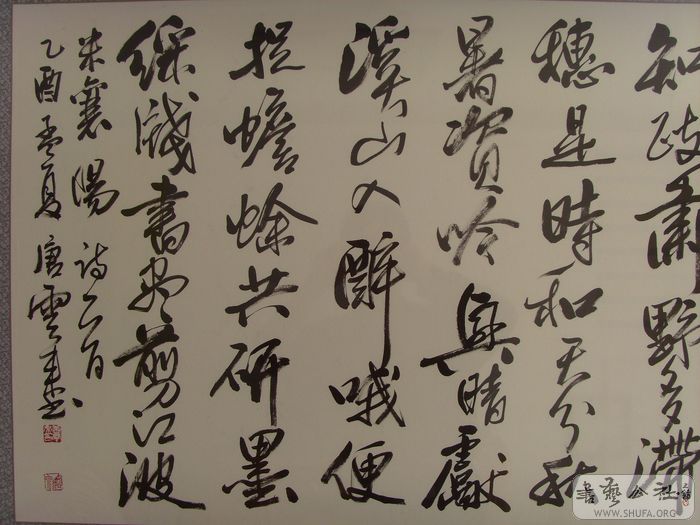 知政肅野多滞
穗是時和天分秋
暑資吟興晴獻
溪山入醉哦便
捉蟾蜍共研墨
綵牋書盡剪江波
米襄陽詩一首
乙酉孟夏唐雲来書
書藝公社
WWW.SHUFA.ORG